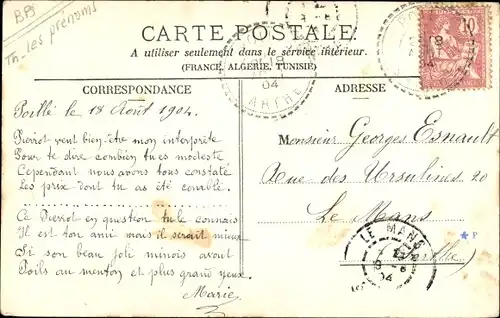 BB
Th-les prénoms
CARTE POSTALE
A utiliser seulement dans le service intérieur.
(FRANCE, ALGERIE, TUNISIE)
10
04
SARTHE
CORRESPONDANCE
ADRESSE
Poillé le 18 Août 1904.
Pierrot veut bien être mon interprète
Pour te dire combien tu es modeste
Cependant nous avons tous constaté
Les prix dont tu as été comblé.
Ce Pierrot en question tu le connais
Il est ton ami mais il serait mieux
Si son beau joli minois avait
Poils au menton et plus grand yeux.
Marie
Monsieur Georges Esnault
Rue des Ursulines 20
Le Mans
(Sarthe)
LE MANS
04
P